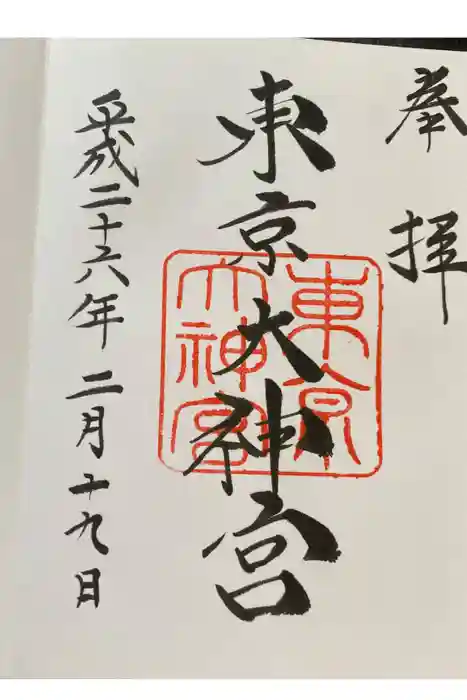 奉拝
東京大神宮
東京大神宮
平成二十六年二月十九日